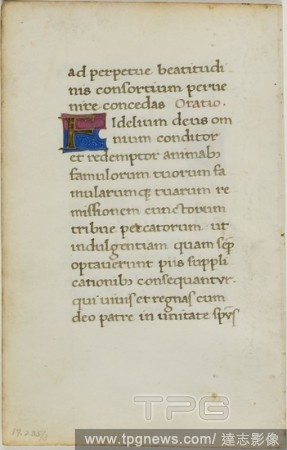 ad perpetue beatitudi
nis consortium perve
nire concedas Oratio.
Fidelium deus om
nium conditor
et redemptor animabꝫ
famulorum tuorum fa
mularumqꝫ tuarum re
missionem cunctorum
tribue peccatorum ut
indulgentiam quam sēp
optaverunt piis suppli
cationibꝫ consequantur.
qui vivis et regnas cum
deo patre in unitate sp̄us
TPG
www.tpgnews.com/達志影像